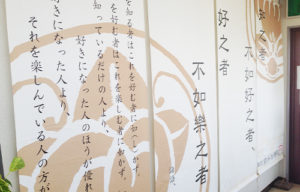 知之者
不如好之者、
好之者
不如樂之者
を知る者はこれを好む者に如(し)かず。
を好む者はこれを楽しむ者に如かず。
知っているだけの人より、
好きになった人のほうが優れ
好きになった人より、
それを楽しんでいる人の方が